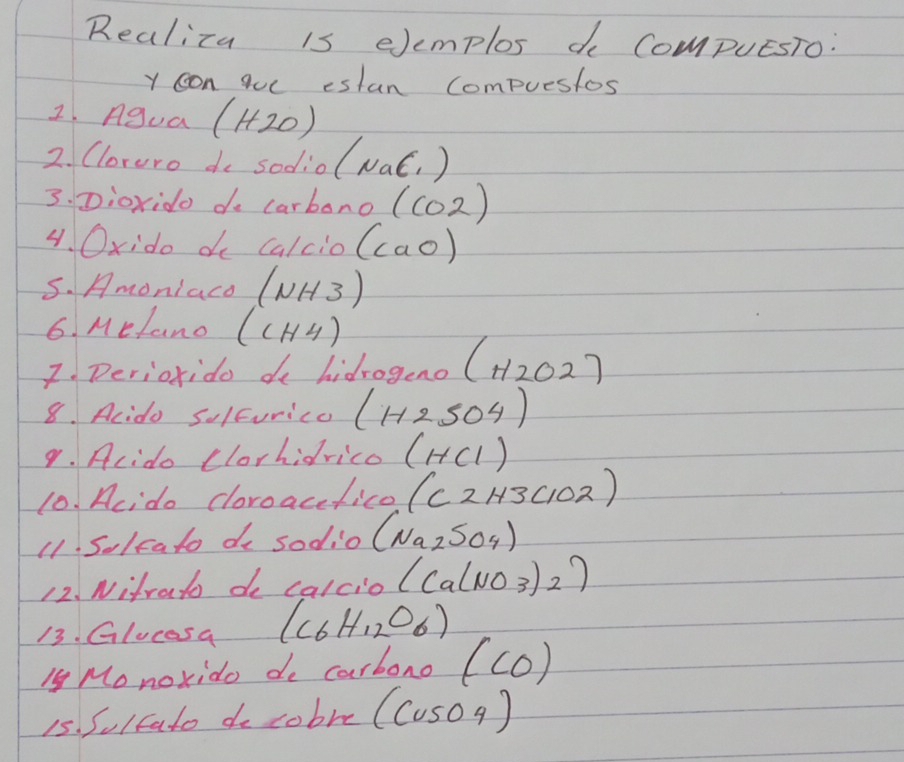 Realiza 15 ejemplos de COMPUESTO:
Y con que estan compuestos
1. Agua (H2O)
2. Cloruro de sodio (NaCl)
3. Dioxido de carbono (CO2)
4. Oxido de calcio (CaO)
5. Amoniaco (NH3)
6. Metano (CH4)
7. Perioxido de hidrogeno (H2O2)
8. Acido sulfurico (H2SO4)
9. Acido clorhidrico (HCl)
10. Acido cloroacetico (C2H3ClO2)
11. Sulfato de sodio (Na2SO4)
12. Nitrato de calcio (Ca(NO3)2)
13. Glucosa (C6H12O6)
14 Monoxido de carbono (CO)
15. Sulfato de cobre (CuSO4)